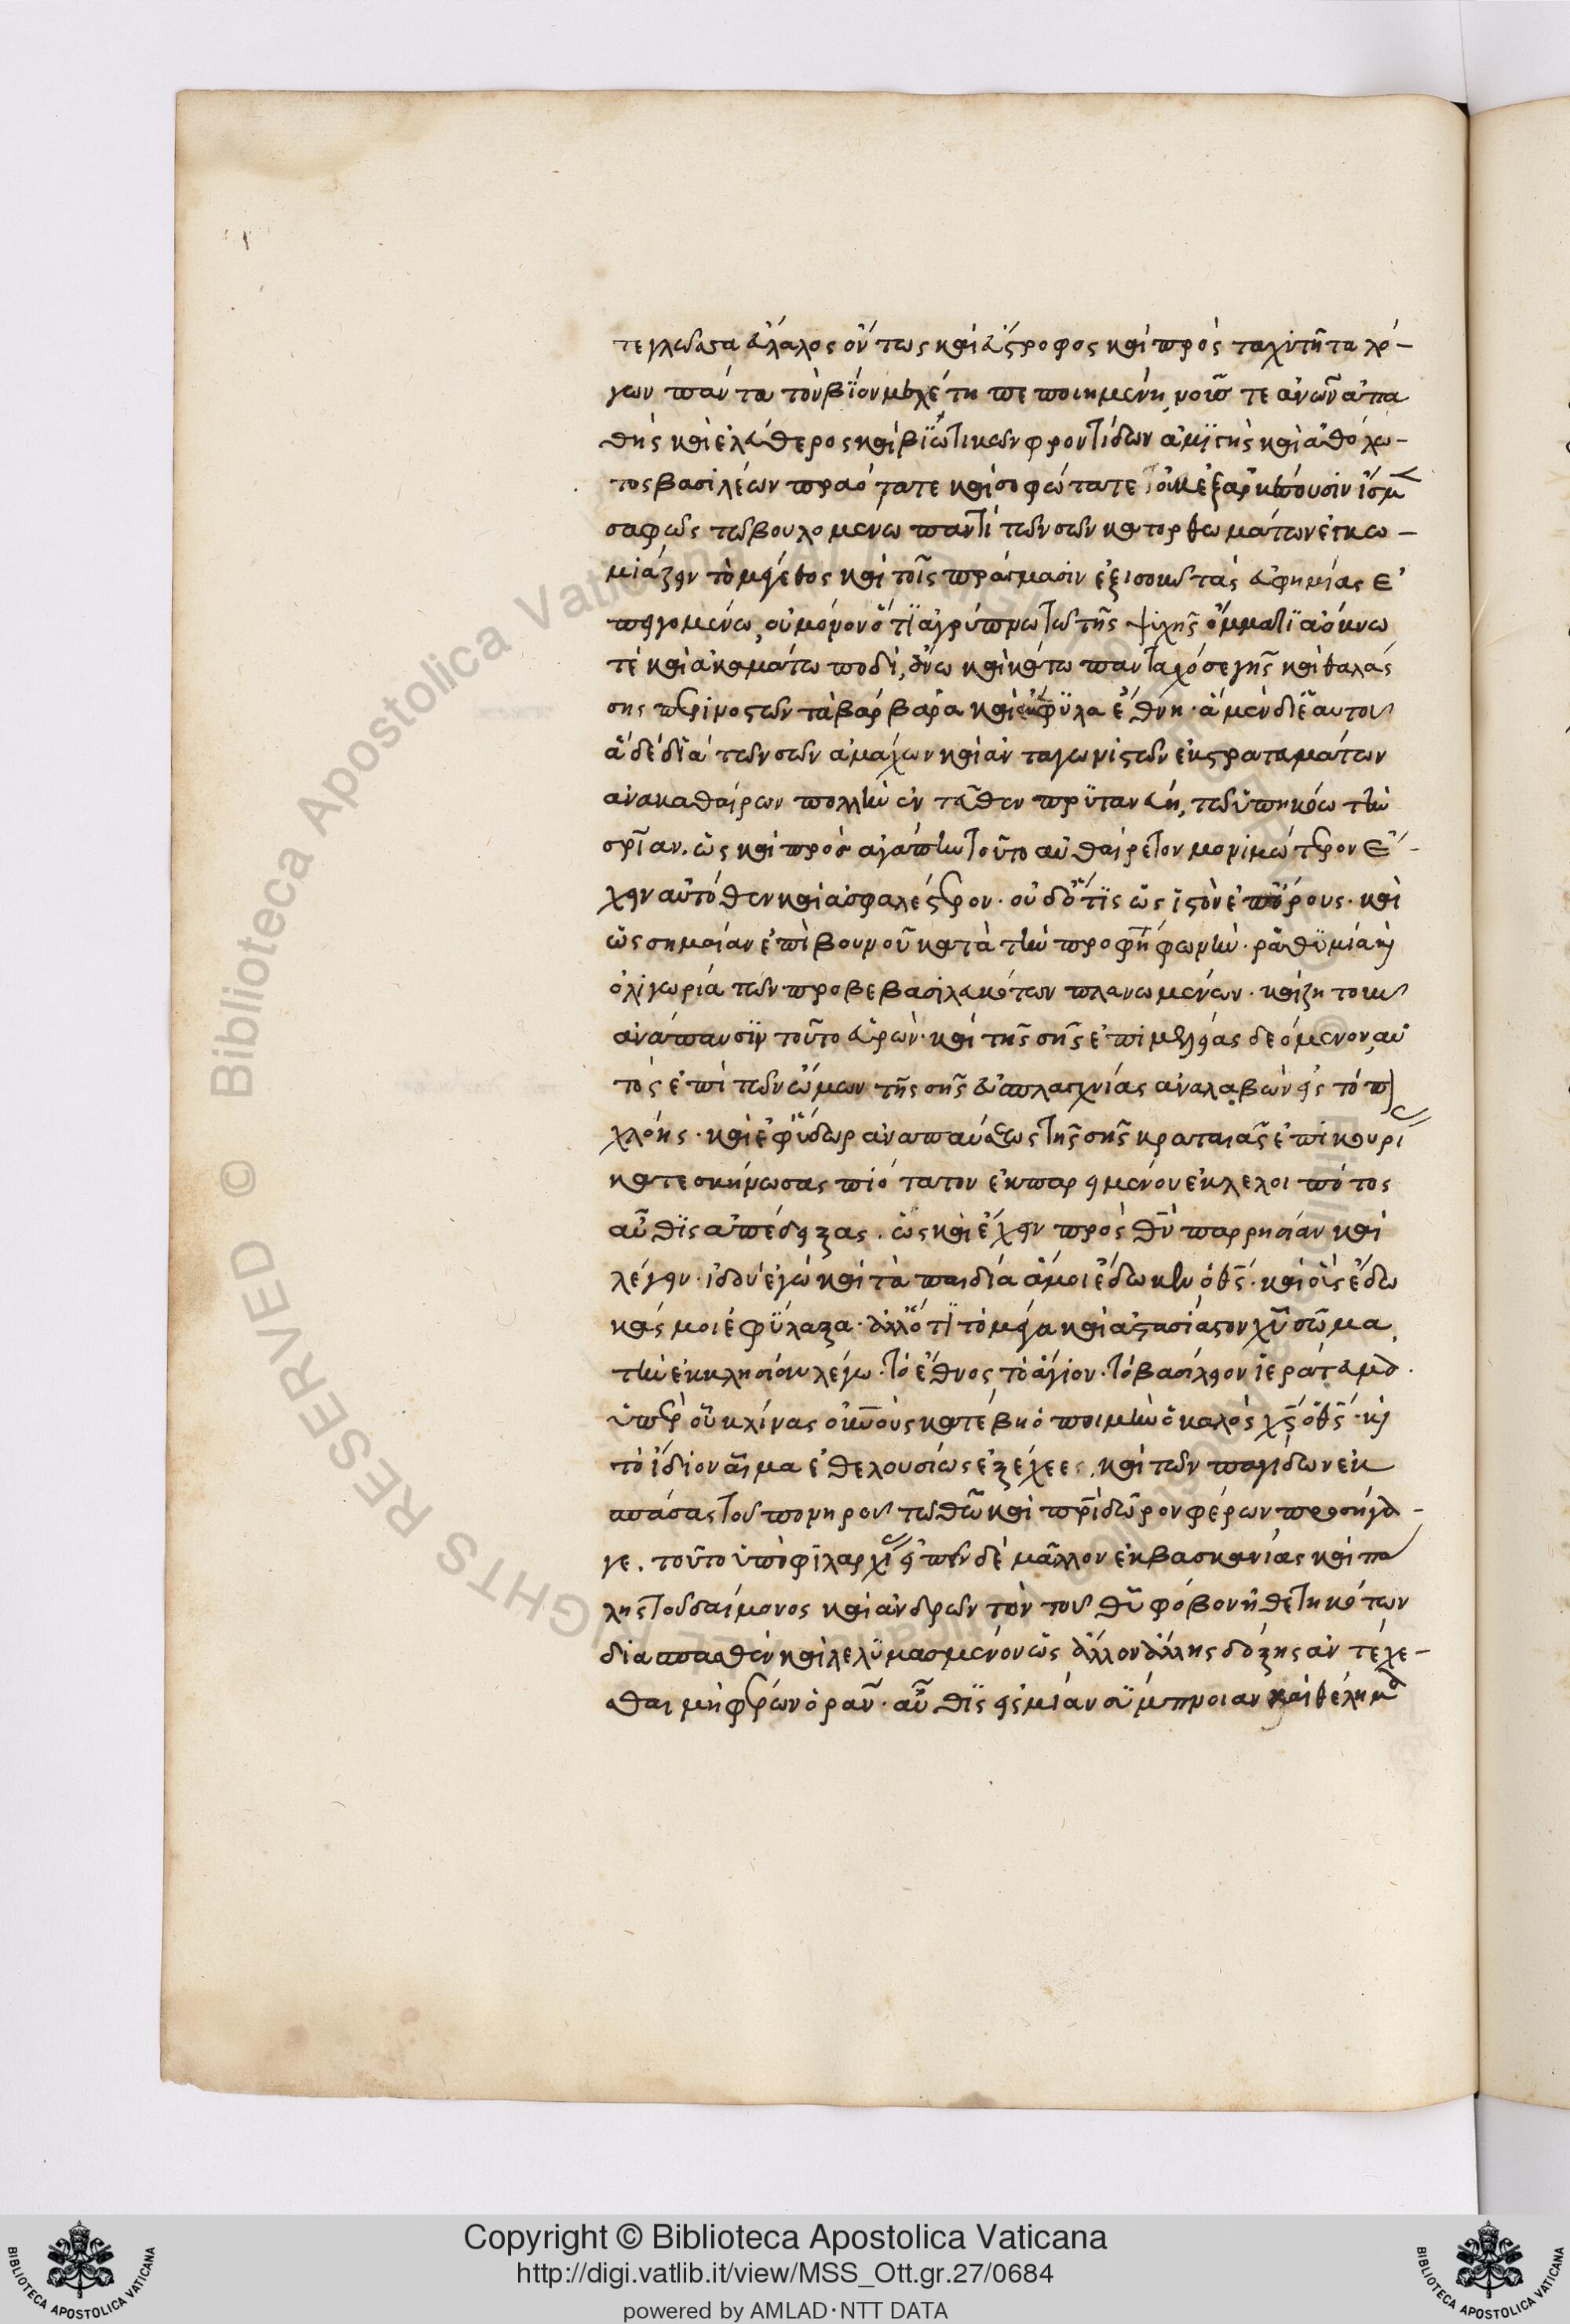 τε γλῶσσα εὔλαλος ὄντως καὶ εὔστροφος καὶ πρὸς ταχύτητα λό-
γων πάντα τὸν βίον μελέτη πεποιημένη, νοῦς τε ἀνῶν ἀπα
θὴς καὶ ἐλεύθερος καὶ βϊωτικῶν φροντίδων ἀμϊγὴς καὶ ἀθόλω-
τος βασιλέων πραότατε καὶ σοφώτατε οὐκ ἐξαρκέσουσιν
σαφῶς τῶ βουλομένω παντὶ τῶν σῶν κατορθωμάτων ἐγκω-
μιάζειν τὸ μέγεθος καὶ τοῖς πράγμασιν ἐξισοῦν τὰς εὐφημίας ἐ
πειγομένω, οὐ μόνον ὅτϊ ἀγρύπνω τῶ τῆς ψυχῆς ὄμματϊ ἀόκνω
τὲ καὶ ἀκαμάτω ποδὶ, ἄνω καὶ κάτω πανταχόσε γῆς καὶ θαλάσ
σης περινοστῶν τὰ βάρβαρα καὶ φϋλα ἔθνη· ἃ μὲν δι ἑαυτοῦ
ἃ δὲ διὰ τῶν σῶν ἀμάχων καὶ ἀνταγωνιστῶν ἐκστρατευμάτων
ἀνακαθαίρων πολλὴν ἐντεῦθεν πρϋτανεύη, τῶ ὑπηκόω τὴν
σρίαν. ὡς καὶ πρὸς ἀγάπην τοῦτο αὐθαίρετον μονιμώτερον ἔ-
χειν αὐτόθεν καὶ ἀσφαλέστερον· οὐδ ὅτϊς ὡς ϊστὸν ἐπ ὄρους· καὶ
ὡς σημαίαν ἐπὶ βουνοῦ κατὰ τὴν προφητ φωνὴν· ῥαθϋμία καὶ
ὀλιγωρία τῶν προβεβασιλευκότων πλανωμένων· καὶ ζητοῦν
ἀνάπαυσϊν τοῦτο εὑρὼν· καὶ τῆς σῆς ἐπιμελείας δεόμενον, αὐ
τὸς ἐπὶ τῶν ὤμων τῆς σῆς εὐσπλαγχνίας ἀναλαβὼν εἰς τόπ
χλόης· καὶ ἐφ ὕδωρ ἀναπαύσεως τῆς σῆς κραταιᾶς ἐπικουρί
κατεσκήνωσας πιότατον ἐκ παρειμένου ἐκλελοιπότος
αὖθϊς ἀπέδειξας. ὡς καὶ ἔχειν πρὸς θν παρρησίαν καὶ
λέγειν· ἰδοὺ ἐγὼ καὶ τὰ παιδία ἅ μοι ἔδωκεν ὁ θς· καὶ οὓς ἔδω
κάς μοι ἐφϋλαξα· ἀλλ ὅτϊ τὸ μέγα καὶ ἀστασίαστον χυ σῶμα,
τὴν ἐκκλησίαν λέγω· τὸ ἔθνος τὸ ἅγιον· τὸ βασίλειον ἱεράτευμα.
ὑπὲρ οὗ κλίνας οὐνοὺς κατέβη ὁ ποιμὴν ὁ καλὸς χς ὁ θς· καὶ
τὸ ἴδιον αἷμα ἐθελουσίως ἐξέχεε, καὶ τῶν παγίδων ἐκ
σπάσας τοῦ πονηροῦ τῶ θω καὶ πρὶ δῶρον φέρων προσήγα-
γε. τοῦτο ὑπὸ φϊλαρχί εἰπεῖν δὲ μᾶλλον ἐκ βασκανίας καὶ πά
λης τοῦ δαίμονος καὶ ἀνδρῶν τὸν τοῦ θυ φόβον ἠθετηκότων
διασπασθὲν καὶ λελϋμασμένον ὡς ἄλλον ἄλλης δόξης ἀντέχε-
σθαι μὴ φέρων ὁρᾶν· αὖθϊς εἰς μίαν σϋμπνοιαν καὶ θέλημα